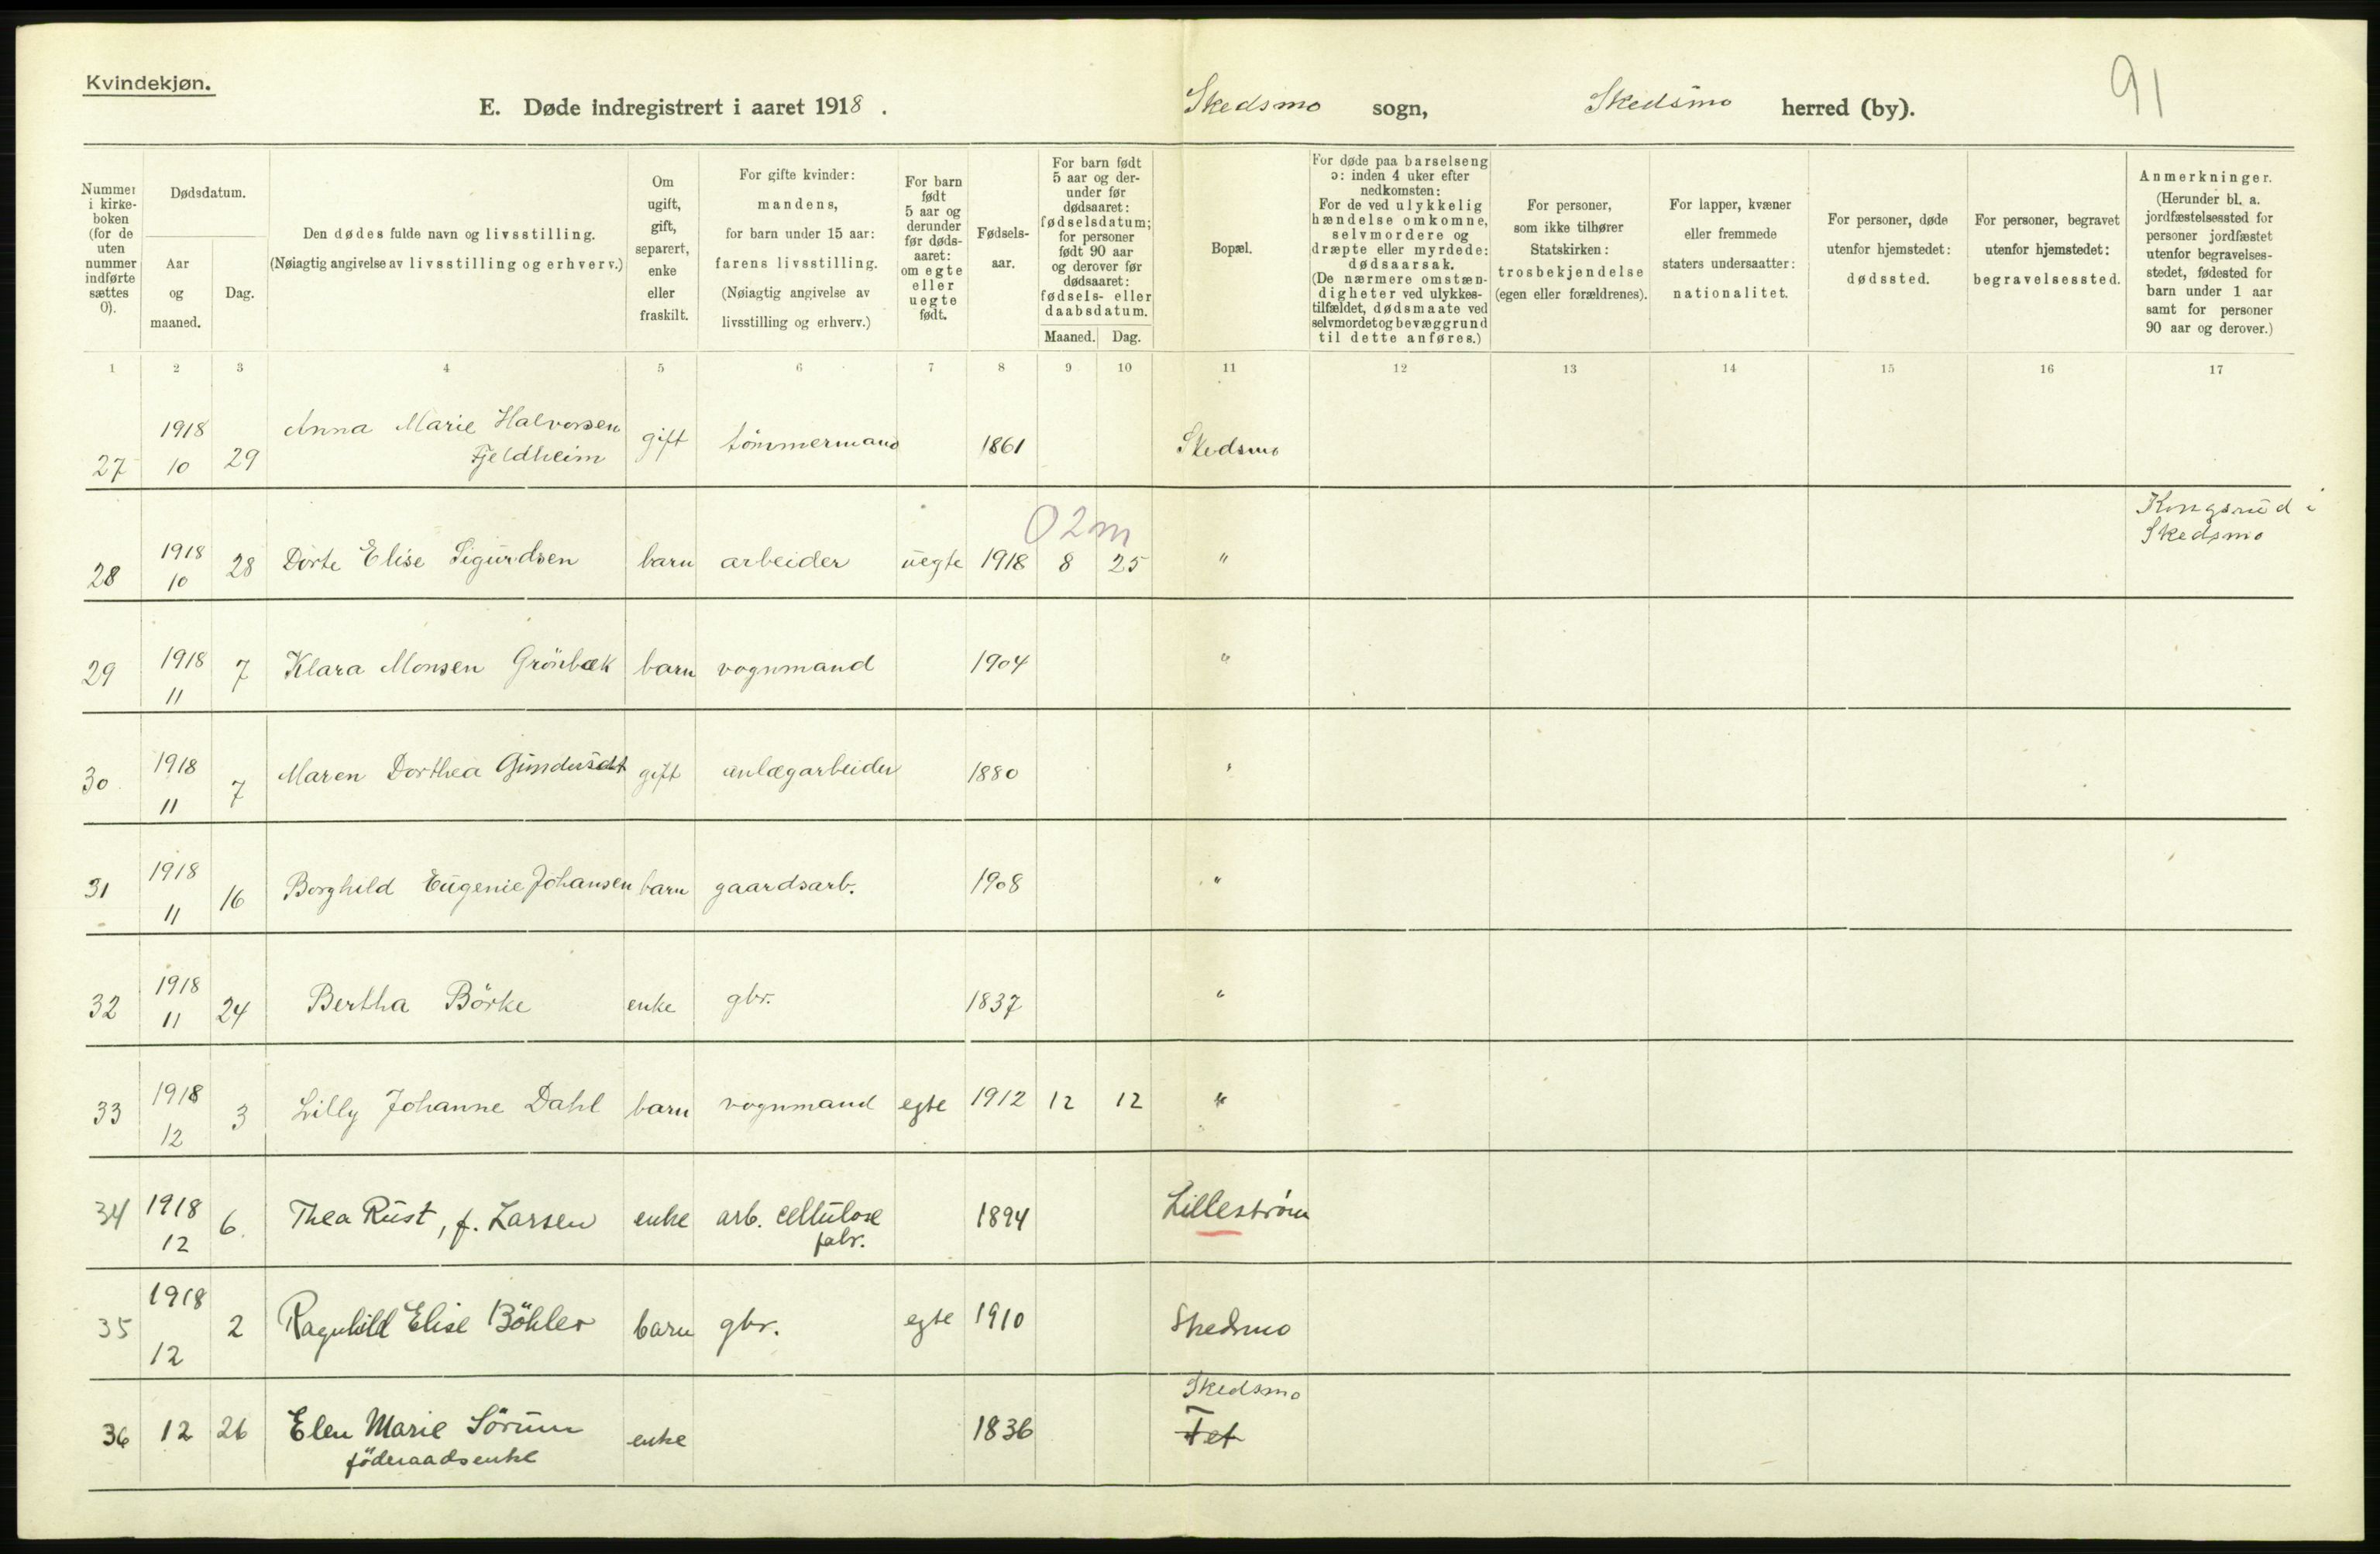 Kvindekjøn.
91
E. Døde indregistrert i aaret 1918. Skedsmo sogn, Skedsmo herred (by).
Nummer i kirke-boken (for de uten nummer indførte sættes 0).
Dødsdatum.
Aar og maaned.
Dag.
Den dødes fulde navn og livsstilling.
(Nøiagtig angivelse av livsstilling og erhverv.)
Om ugift, gift, separert, enke eller fraskilt.
For gifte kvinder:
mandens,
for barn under 15 aar:
farens livsstilling.
(Nøiagtig angivelse av
livsstilling og erhverv.)
For barn født 5 aar og derunder før døds-aaret: om egte eller uegte født.
Fødsels-aar.
For barn født
5 aar og der-
under før
dødsaaret:
fødselsdatum;
for personer
født 90 aar
og derover før
dødsaaret:
fødsels- eller
daabsdatum.
Maaned. Dag.
Bopæl.
For døde paa barselseng
ɔ: inden 4 uker efter
nedkomsten:
For de ved ulykkelig
hændelse omkomne,
selvmordere og
dræpte eller myrdede:
dødsaarsak.
(De nærmere omstæn-
digheter ved ulykkes-
tilfældet, dødsmaate ved
selvmordet og bevæggrund
til dette anføres.)
For personer,
som ikke tilhører
Statskirken:
trosbekjendelse
(egen eller forældrenes).
For lapper, kvæner
eller fremmede
staters undersaatter:
nationalitet.
For personer, døde
utenfor hjemstedet:
dødssted.
For personer, begravet
utenfor hjemstedet:
begravelsessted.
Anmerkninger.
(Herunder bl. a.
jordfæstelsessted for
personer jordfæstet
utenfor begravelses-
stedet, fødested for
barn under 1 aar
samt for personer
90 aar og derover.)
1 2 3 4 5 6 7 8 9 10 11 12 13 14 15 16 17
27 1918 10 29 Anna Marie Halvorsen Fjeldheim gift tömmermand 1861 Skedsmo
02m
28 1918 10 28 Dorte Elise Sigurdsen barn arbeider uegte 1918 8 25 " Kongsrud i Skedsmo
29 1918 11 7 Klara Monsen Grönbæk barn vognmand 1904 "
30 1918 11 7 Maren Dorthea gift anlægarbeider 1880 "
31 1918 11 16 Borghild Eugenie Johansen barn gaardsarb. 1908 "
32 1918 11 24 Bertha Börke enke gbr. 1837 "
33 1918 12 3 Lilly Johanne Dahl barn vognmand egte 1912 12 12 "
34 1918 12 6. Thea Rust, f. Larsen enke arb. cellulose fabr. 1894 Lilleström
35 1918 12 2 Ragnhild Elise Böhler barn gbr. egte 1910 Skedsmo
36 12 26 Elen Marie Sörum föderaadsenke enke 1836 Skedsmo Fet